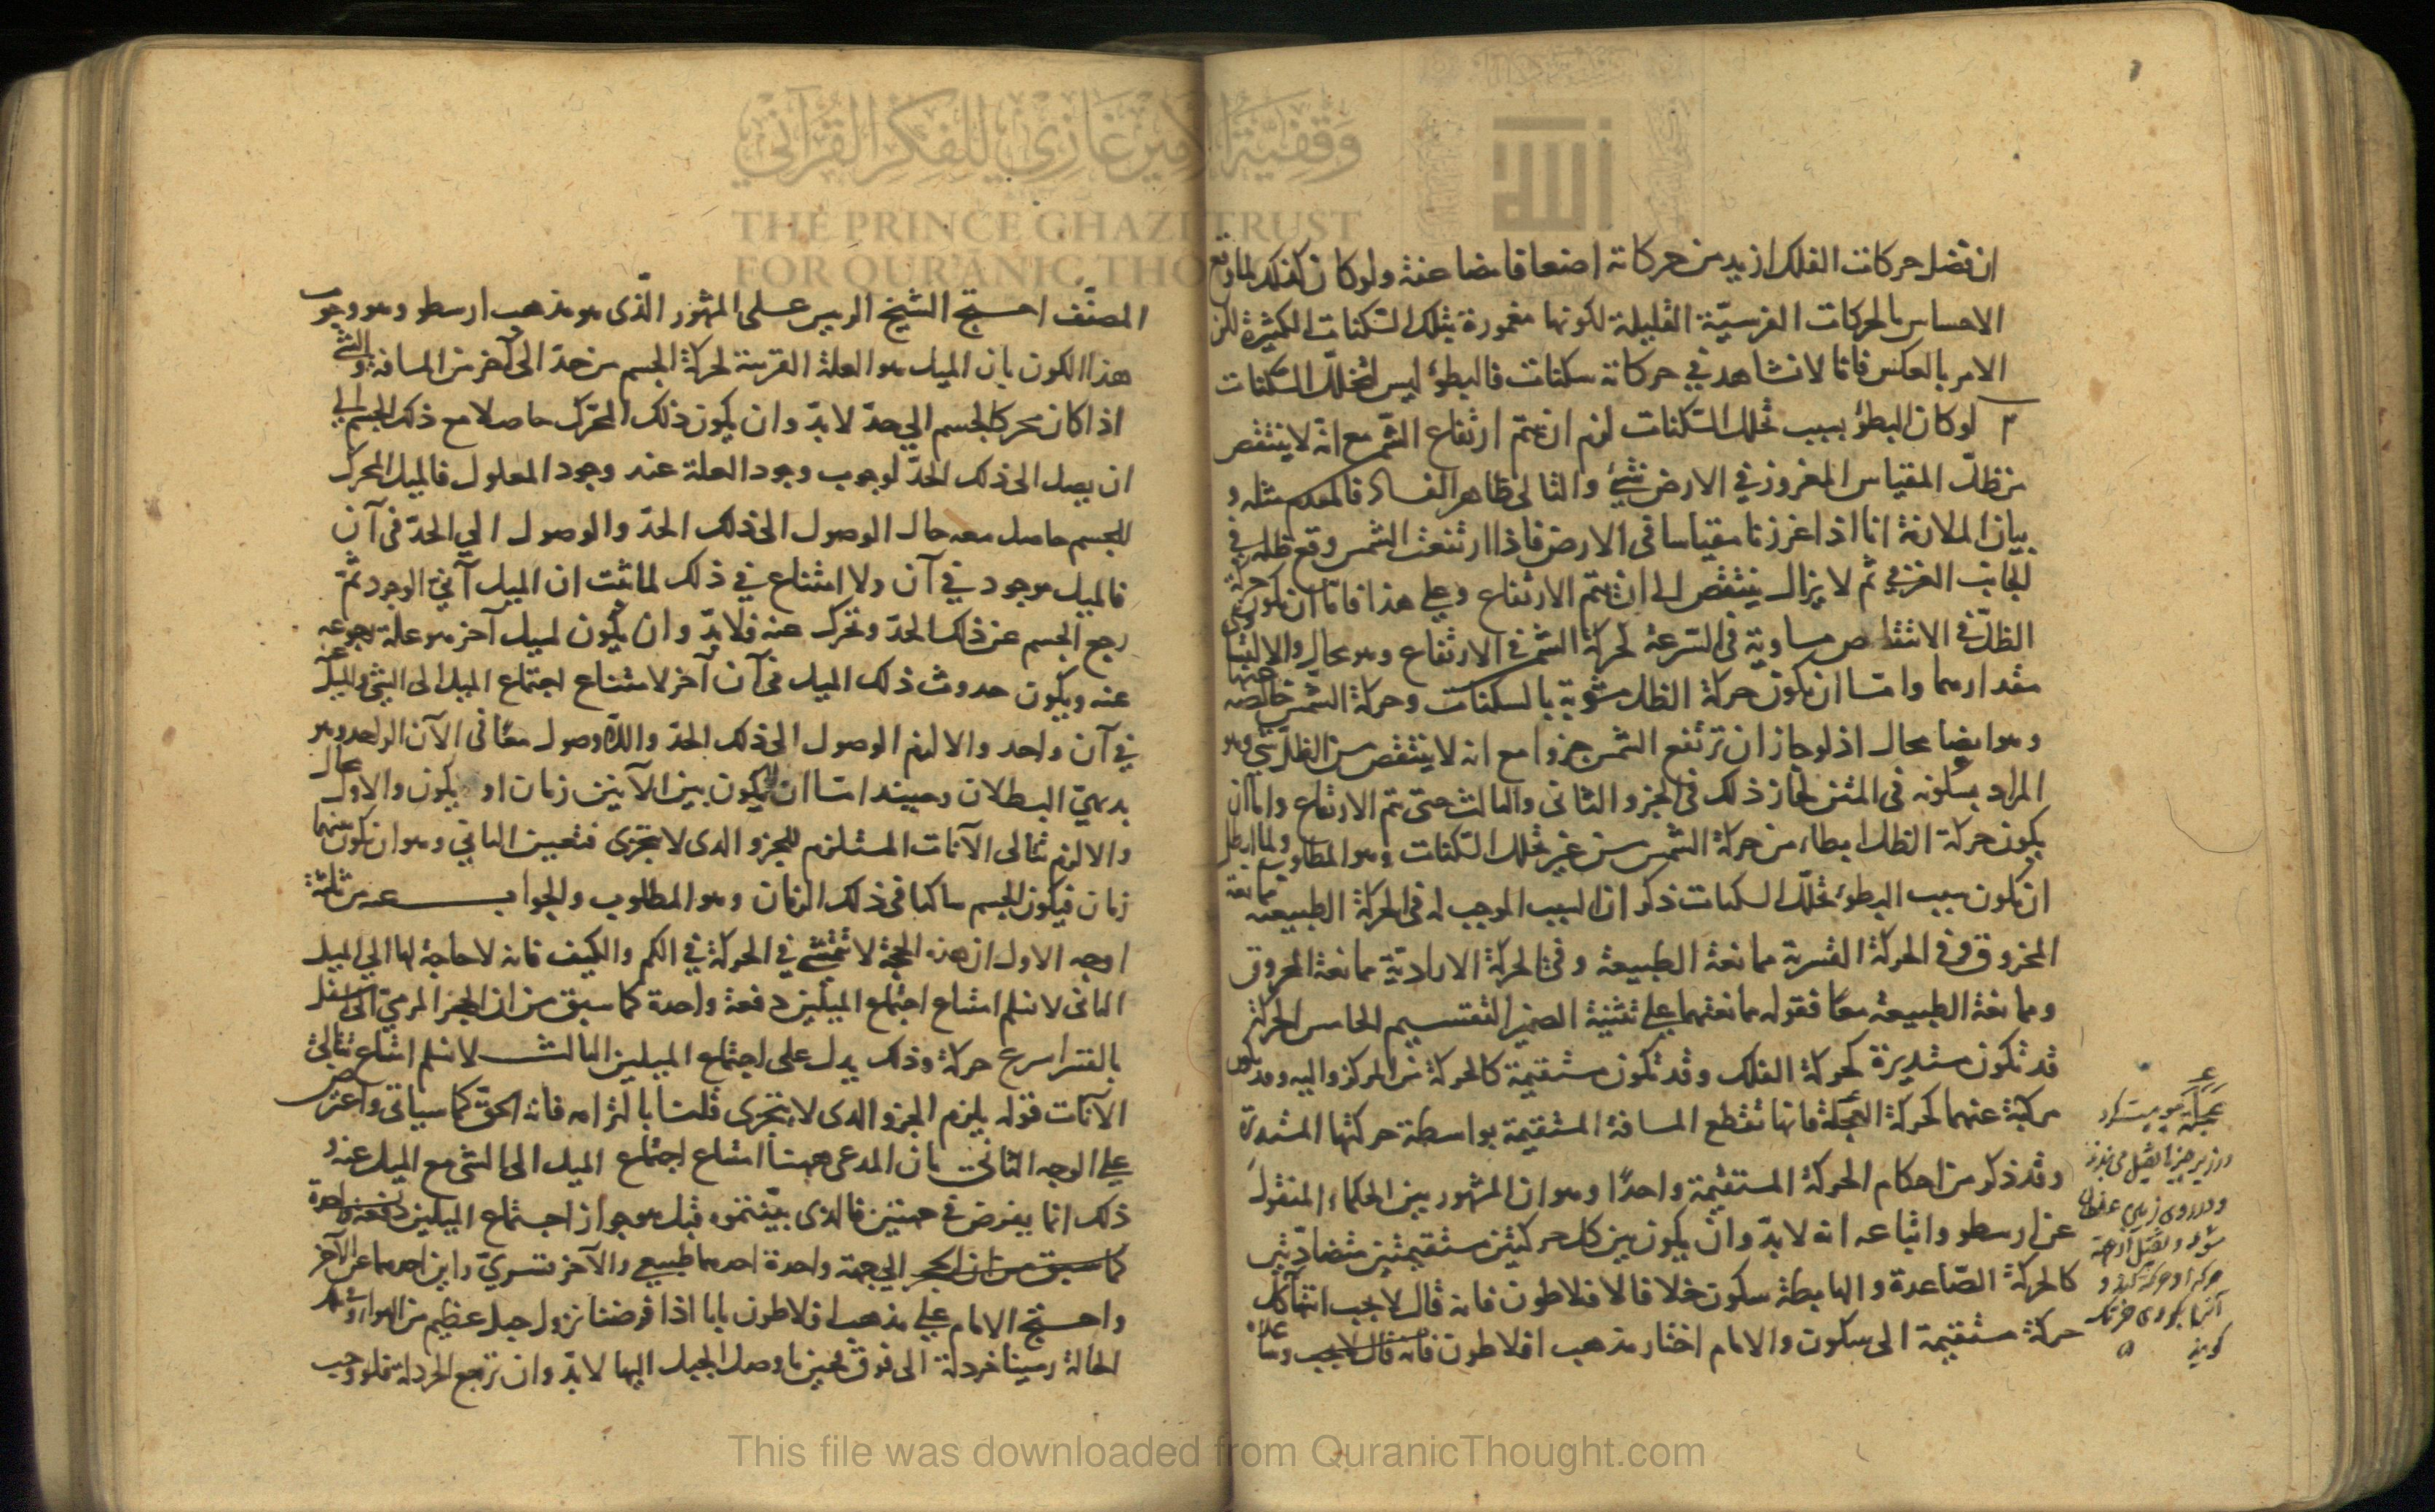 ان فضل حركات الفلك ازيد من حركاته اضعافا مضاعفة ولو كان كذلك لما وقع
الاحساس بالحركات الفرسيّة القليلة لكونها مغمورة بتلك السكنات الكثيرة لكن
الامر بالعكس فانا لا نشاهد في حركاته سكنات فالبطؤ ليس لتخلّل السكنات
٣ لو كان البطؤ بسبب تخلل السكنات لزم ان يتم ارتفاع الشمس مع انه لا ينتقص
من ظلّ المقياس المغروز في الارض شئ والتالى ظاهر الفساد فالمقدم مثله و
بيان الملازمة انا اذا غرزنا مقياسا فى الارض فاذا ارتفعت الشمس وقع ظله في
الجانب الغربى ثم لا يزال ينتقص الى ان يتم الارتفاع وعلى هذا فامّا ان تكون حركة
الظلّ فى الانتقاص مساوية فى السرعة لحركة الشمس فى الارتفاع وهو محال والا لتساوى
مقدارهما وامّا ان تكون حركة الظل مشوبة بالسكنات وحركة الشمس خالصة عنها
وهو ايضا محال اذ لو جاز ان ترتفع الشمس جزوا مع انه لا ينتقص من الظل شئ وهو
المراد بسكونه فى المتن لجاز ذلك فى الجزو الثانى والثالث حتى تم الارتفاع وامّا ان
يكون حركة الظل ابطاء من حركة الشمس من غير تخلل السكنات وهو المطلوب ولما ابطل
ان تكون سبب البطؤ تخلّل السكنات ذكر ان السبب الموجب له فى الحركة الطبيعية ممانعة
المخروق وفى الحركة القسرية ممانعة الطبيعة وفى الحركة الاراديّة ممانعة المخروق
وممانعة الطبيعة معًا فقوله ممانعتهما على تثنية الضمير التقسيم الخامس الحركة
قد تكون مستديرة كحركة الفلك وقد تكون مستقيمة كالحركة من المركز واليه وقد تكون
مركبة عنهما كحركة العجلة فانها تقطع المسافة المستقيمة بواسطة حركتها المستديرة
وقد ذكر من احكام الحركة المستقيمة واحدًا وهو ان المشهور بين الحكماء المنقول
عن ارسطو واتباعه انه لا بدّ وان يكون بين كل حركتين مستقيمتين متضادّتين
كالحركة الصّاعدة والهابطة سكون خلافا لافلاطون فانه قال لا يجب انتهاء كل
حركة مستقيمة الى سكون والامام اختار مذهب افلاطون فانه قال لا يجب
المصنّف احتج الشيخ الرييس على المشهور الّذى هو مذهب ارسطو وهو وجوب
هذا الكون بان الميل هو العلة القريبة لحركة الجسم من حدّ الى آخر من المسافة والشئ
اذا كان محركا لجسم الى حدّ لا بدّ وان يكون ذلك المحرّك حاصلا مع ذلك الجسم الى
ان يصل الى ذلك الحدّ لوجوب وجود العلة عند وجود المعلول فالميل المحرك
للجسم حاصل معه حال الوصول الى ذلك الحدّ والوصول الى الحدّ فى آن
فالميل موجود في آن ولا امتناع في ذلك لما ثبت ان الميل آنىّ الوجود ثمّ
رجع الجسم عن ذلك الحدّ وتحرك عنه فلا بدّ وان يكون لميل آخر هو علة رجوعه
عنه ويكون حدوث ذلك الميل فى آن آخر لامتناع اجتماع الميل الى الشئ والميل عنه
في آن واحد والا لزم الوصول الى ذلك الحدّ واللاوصول معًا فى الآن الواحد وهو
بديهيّ البطلان وحينئذ امّا ان لا يكون بين الآنين زمان او يكون والاول محال
والا لزم تتالى الآنات المستلزم للجزو الذى لا يتجزى فتعين الثاني وهو ان يكون بينهما
زمان فيكون الجسم ساكنا فى ذلك الزمان وهو المطلوب والجواب عنه من ثلثة
اوجه الاول ان هذه الحجة لا تتمشى في الحركة في الكم والكيف فانه لا حاجة لها الى الميل
الثانى لا نسلم امتناع اجتماع الميلين دفعة واحدة كما سبق من ان الحجر المرميّ الى اسفل
بالقسر اسرع حركة وذلك يدل على اجتماع الميلين الثالث لا نسلم امتناع تتالى
الآنات قوله يلزم الجزو الذى لا يتجزى قلنا بالتزامه فانه الحق كما سياتى واعترض
على الوجه الثانى بان المدعى ههنا امتناع اجتماع الميل الى الشئ مع الميل عنه و
ذلك انما يفرض فى جهتين فالذى بيّنتموه قبل هو جواز اجتماع الميلين دفعة واحدة
كما سبق من ان الحجر الى جهة واحدة احدهما طبيعي والآخر قسريّ واين احدهما عن الآخر
واحتج الامام على مذهب افلاطون بانا اذا فرضنا نزول جبل عظيم من الهواء و
الحالة رمينا خردلة الى فوق فحين ما وصل الجبل اليها لا بدّ وان ترجع الخردلة فلو وجب
This file was downloaded from QuranicThought.com
وقفية الأمير غازي للفكر القرآني
THE PRINCE GHAZI TRUST
FOR QUR'ANIC THOUGHT
الله